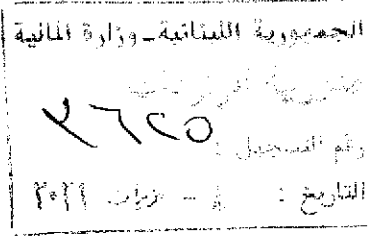 الجمهورية اللبنانية - وزارة المالية
مديرية
٢٦٢٥
رقم التسجيل :
التاريخ : - حزيران ٢٠٢١